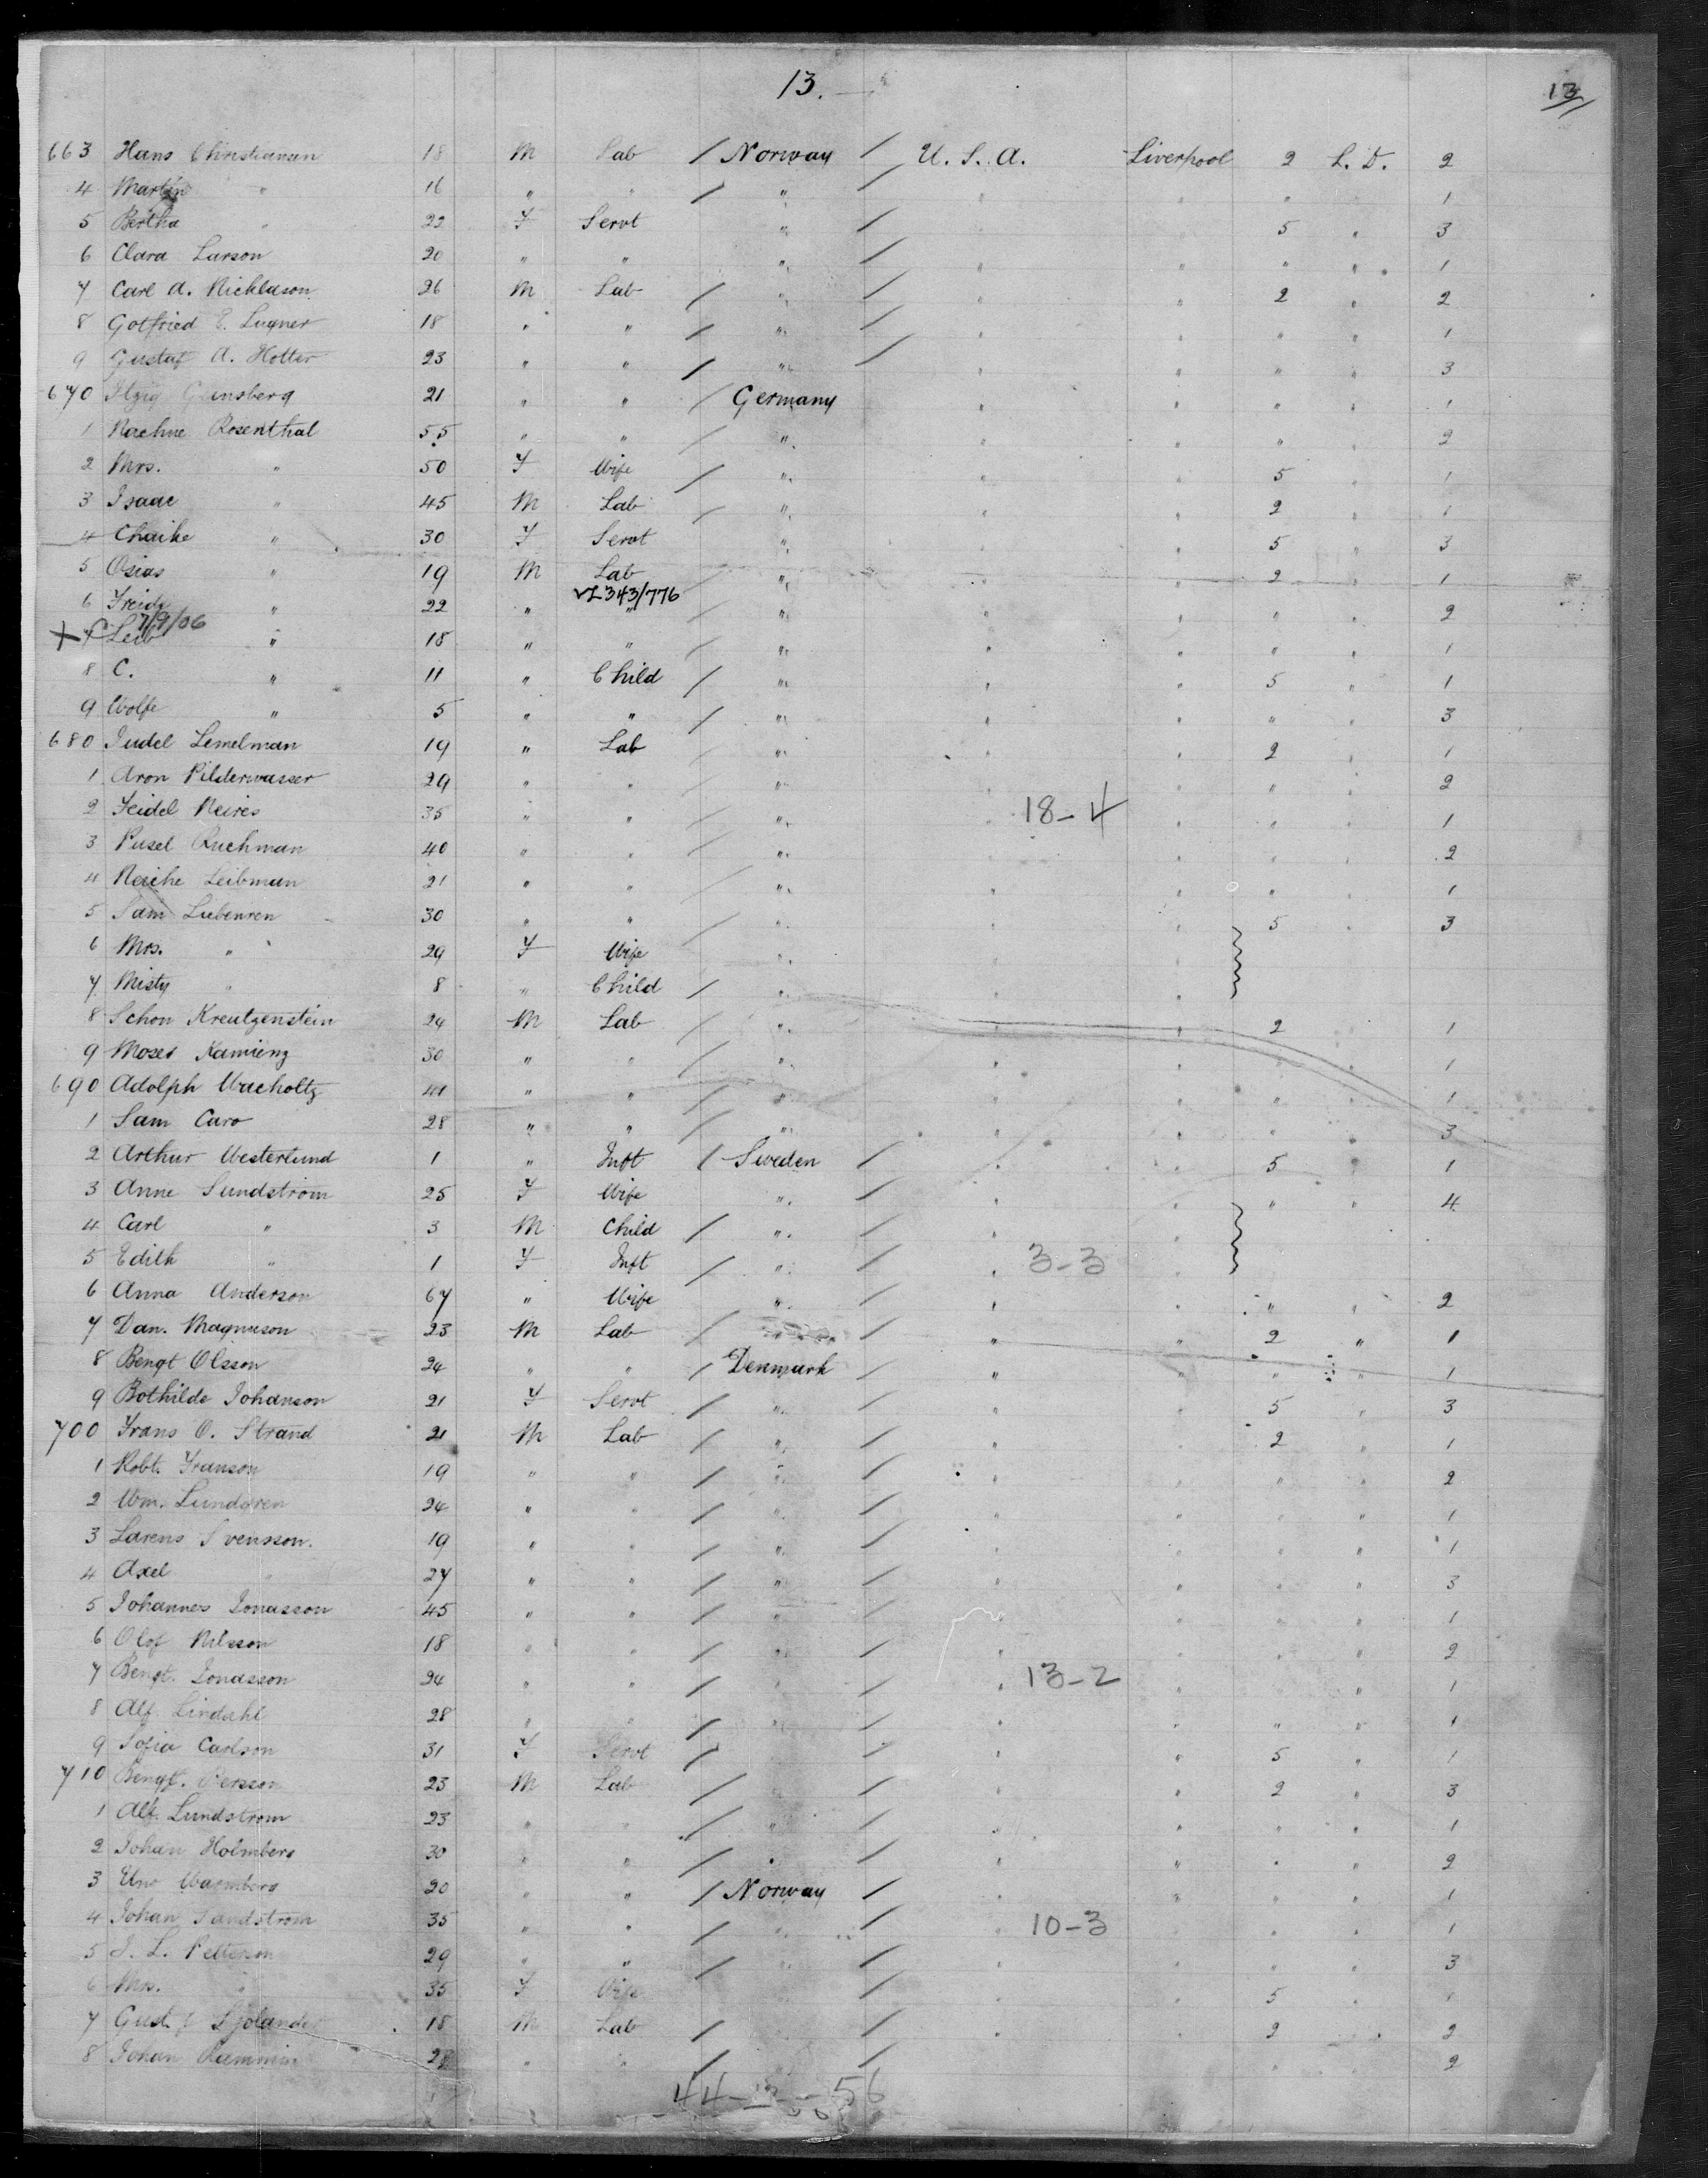 13.
13
663 Hans Christiansen 18 M Lab / Norway / U. S. A. Liverpool 2 L. D. 2
4 Martin " 16 " " / " / " " " " 1
5 Bertha " 22 F Servt " / " " 5 " 3
6 Clara Larson 20 " " " / " " " " 1
7 Carl A. Nicklason 26 M Lab / " / " " 2 " 2
8 Gotfried E. Lugner 18 " " / " / " " " " 1
9 Gustaf A. Hotter 23 " " / " / " " " " 3
670 Itzig Ginsberg 21 " " / Germany " " " " 1
1 Nachne Rosenthal 55 " " / " " " " " 2
2 Mrs. " 50 F Wife / " " " 5 " 1
3 Isaac " 45 M Lab / " " " 2 " 1
4 Chaike " 30 F Servt " " " 5 " 3
5 Osias " 19 M Lab / " " " 2 " 1
VL 343/776
6 Freidz " 22 " " / " " " " " 2
7/9/06
X 7 Leib " 18 " " / " " " " " 1
8 C. " 11 " Child / " " " 5 " 1
9 Wolfe " 5 " " / " " " " " 3
680 Judel Lemelman 19 " Lab / " " " 2 " 1
1 Aron Pilderwasser 29 " " / " " " " " 2
2 Feidel Neires 35 " " / " 18-4 " " " 1
3 Pusel Ruchman 40 " " / " " " " " 2
4 Neiche Leibman 21 " " / " " " " " 1
5 Sam Liebenren 30 " " / " " " 5 " 3
6 Mrs. " 29 F Wife " " "
7 Misty " 8 " Child / " " "
8 Schon Kreutzenstein 24 M Lab / " " " 2 " 1
9 Moses Kamienz 30 " " / " " " " " 1
690 Adolph Wacholtz 41 " " / " " " " " 1
1 Sam Caro 28 " " / " " " " " 3
2 Arthur Westerlund 1 " Inft / Sweden / " " 5 " 1
3 Anne Sundstrom 25 F Wife " / " " " " 4
4 Carl " 3 M Child / " / " "
5 Edith " 1 F Inft / " / " 3-3 "
6 Anna Anderson 67 " Wife " / " " " " 2
7 Dan. Magnuson 23 M Lab / " / " " 2 " 1
8 Bengt Olsson 24 " " / Denmark / " " " " 1
9 Bothilde Johanson 21 F Servt / " / " " 5 " 3
700 Frans O. Strand 21 M Lab / " / " " 2 " 1
1 Robt. Franson 19 " " / " / " " " " 2
2 Wm. Lundgren 24 " " / " / " " " " 1
3 Larens Svensson. 19 " " / " / " " " " 1
4 Axel " 27 " " / " / " " " " 3
5 Johannes Jonasson 45 " " / " / " " " " 1
6 Olof Nilsson 18 " " / " / " " " " 2
7 Bengt. Jonasson 24 " " / " / " 13-2 " " " 1
8 Alf. Lindahl 28 " " / " / " " " " 1
9 Sofia Carlson 31 F Servt / " / " " 5 " 1
710 Bengt. Persson 23 M Lab / " / " " 2 " 3
1 Alf. Lundstrom 23 " " / " / " " " " 1
2 Johan Holmberg 30 " " / " / " " " " 2
3 Uno Warmberg 20 " " / Norway / " " " " 1
4 Johan Sandstrom 35 " " / " / " 10-3 " " " 1
5 J. L. Petterson 29 " " / " / " " " " 3
6 Mrs. " 35 F Wife / " " 5 " 1
7 Gust. Sjolander 18 M Lab / / " " 2 " 2
8 Johan 28 " " / / " " 2
44- -56